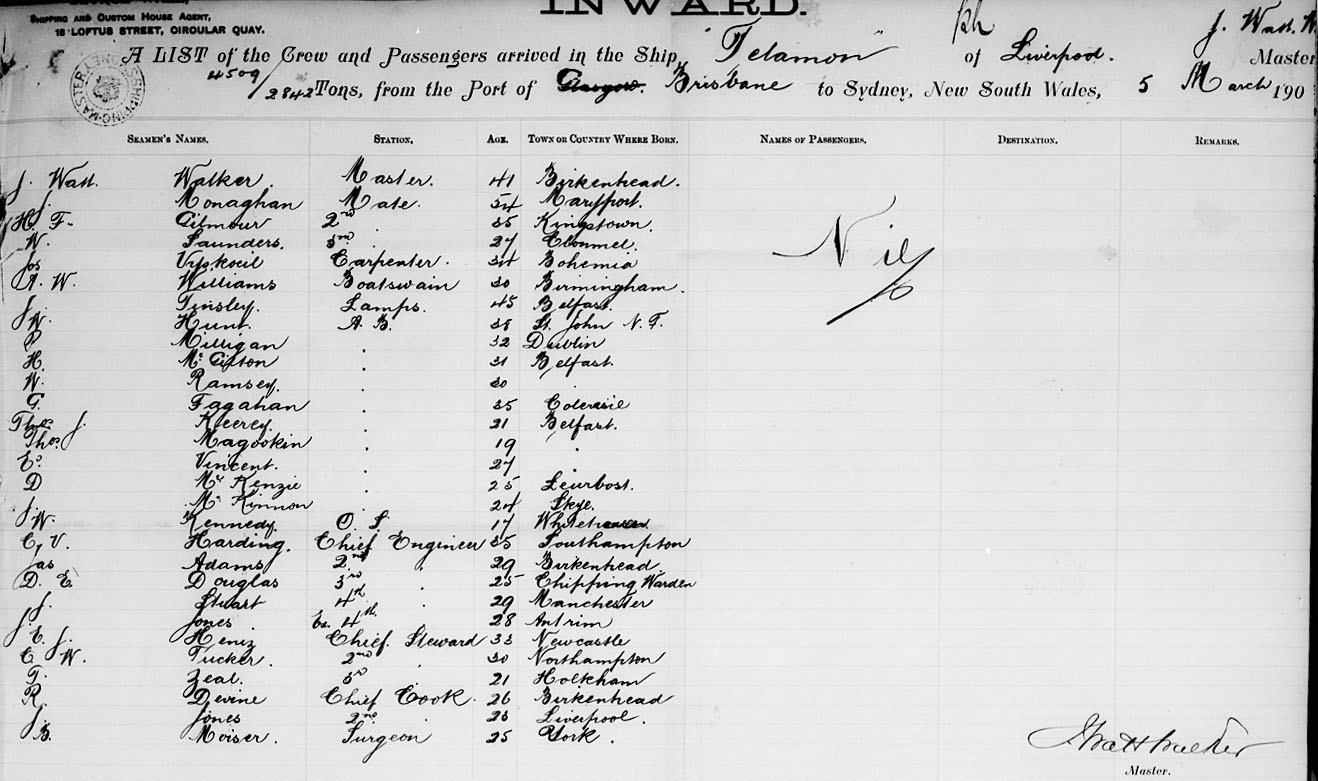 SHIPPING AND CUSTOM HOUSE AGENT,
18 LOFTUS STREET, CIRCULAR QUAY.
INWARD.
A LIST of the Crew and Passengers arrived in the Ship, "Telamon" of Liverpool. J. Watt. Master
4509/2842 Tons, from the Port of Glasgow. Brisbane to Sydney, New South Wales, 5 March 190
SHIPPING MASTER
SEAMEN'S NAMES. STATION. AGE. TOWN OR COUNTRY WHERE BORN. NAMES OF PASSENGERS. DESTINATION. REMARKS.
J. Watt. Walker. Master. 41 Birkenhead.
J. Monaghan Mate. 54 Maryport.
H. F. Gilmour 2nd . 35 Kingstown.
W. Saunders. 3rd . 27 Clonmel.
Jos Carpenter. 34 Bohemia
Nil
A. W. Williams Boatswain 30 Birmingham.
J. Tinsley. Lamps. 45 Belfast.
W. Hunt. A. B. 38 St. John N. F.
P Milligan . 32 Dublin
H. . 31 Belfast.
W. Ramsey. . 30
G. Fagahan . 35
Thos. J. Keerey. . 21 Belfast.
Thos. Magookin . 19 .
Vincent. . 27 .
D McKenzie . 25 Leurbost.
McKinnon . 24 Skye.
J. W. Kennedy. O. S. 17 Whitehaven
C. V. Harding. Chief Engineer 35 Southampton
Jas Adams 2nd . 29 Birkenhead.
D. E. Douglas 3rd . 25 Chipping Warden
J. Stuart 4th . 29 Manchester
J. Jones. Ex. 4th. 28 Antrim
E. J. Chief. Steward 33 Newcastle
C W. Tucker. 2nd . 30 Northampton
T. Zeal. 3rd 21 Holkham
R. Devine Chief Cook. 26 Birkenhead
J. Jones 2nd . 23 Liverpool.
B. Moiser. Surgeon 25 York.
J Watt Walker
Master.